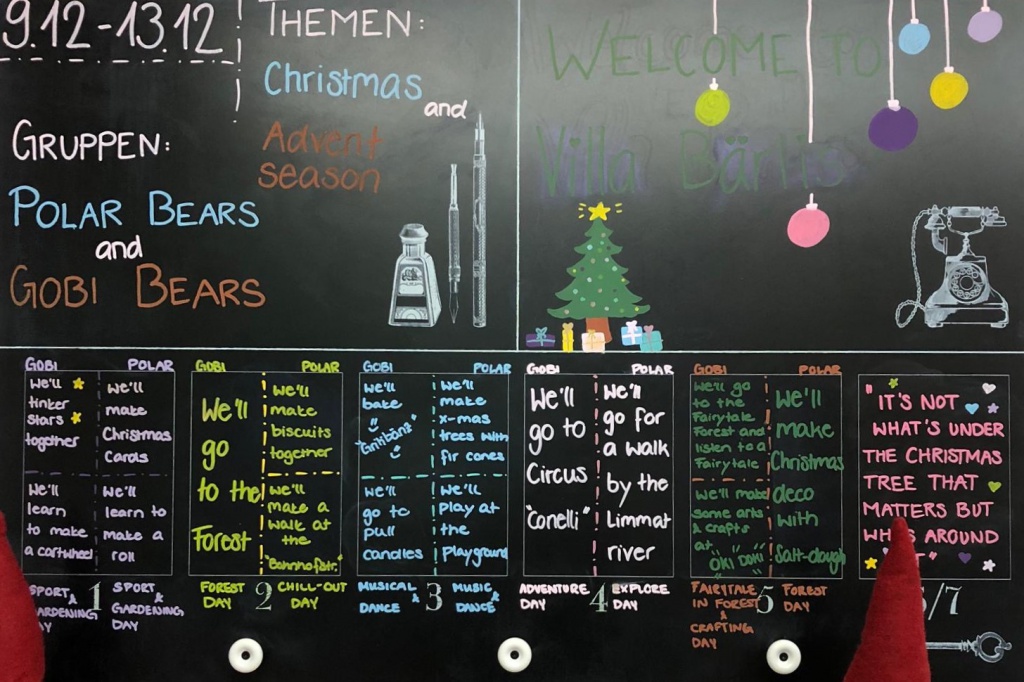 9.12-13.12
THEMEN:
Christmas
and
Advent
season
GRUPPEN:
POLAR BEARS
and
GOBI BEARS
WELCOME TO
Villa Bärlis
GOBI POLAR
We'll
tinker
stars
together
We'll
make
Christmas
Cards
We'll
learn
to make
a cartwheel
We'll
learn to
make a
roll
SPORT &
GARDENING
DAY
1
SPORT &
GARDENING
DAY
GOBI POLAR
We'll
go
to the
Forest
We'll
make
biscuits
together
We'll
make a
walk at
the
"Bahnhofstr."
FOREST
DAY
2
CHILL-OUT
DAY
GOBI POLAR
We'll
bake
"Grittibänz"
We'll
make
x-mas
trees with
fir cones
We'll
go to
pull
candles
We'll
play at
the
playground
MUSICAL &
DANCE
3
MUSIC &
DANCE
GOBI POLAR
We'll
go to
Circus
"Conelli"
We'll
go for
a walk
by the
Limmat
river
ADVENTURE
DAY
4
EXPLORE
DAY
GOBI POLAR
We'll go
to the
Fairytale
Forest and
listen to a
Fairytale
We'll make
some arts
& crafts
at
"ÖKI DÖKI"
We'll
make
Christmas
deco
with
Salt-dough
FAIRYTALE
IN FOREST
&
CRAFTING
DAY
5
FOREST
DAY
"IT'S NOT
WHAT'S UNDER
THE CHRISTMAS
TREE THAT
MATTERS BUT
AROUND
/7